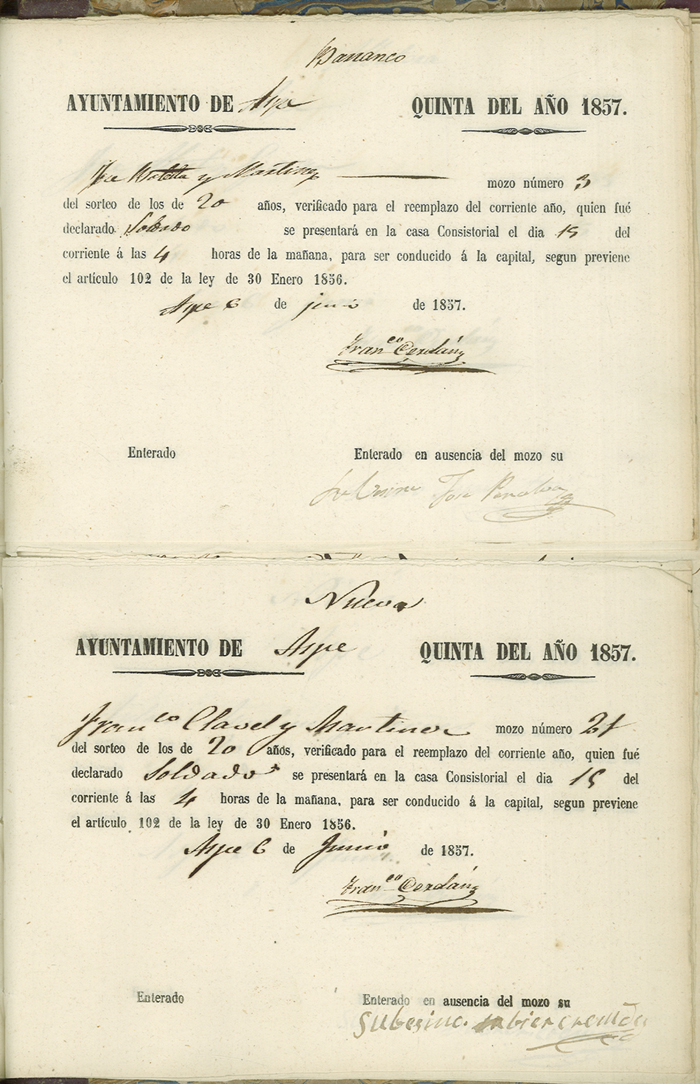 Barranco
AYUNTAMIENTO DE Aspe QUINTA DEL AÑO 1857.
y Martinez mozo número 3
del sorteo de los de 20 años, verificado para el reemplazo del corriente año, quien fué
declarado Soldado se presentará en la casa Consistorial el dia 15 del
corriente á las 4 horas de la mañana, para ser conducido á la capital, segun previene
el artículo 102 de la ley de 30 Enero 1856.
Aspe 6 de junio de 1857.
Fran.co Cerdán
Enterado Enterado en ausencia del mozo su
Jose Penalva
Nueva
AYUNTAMIENTO DE Aspe QUINTA DEL AÑO 1857.
Fran.co Clavel y Martinez mozo número 21
del sorteo de los de 20 años, verificado para el reemplazo del corriente año, quien fué
declarado Soldado se presentará en la casa Consistorial el dia 15 del
corriente á las 4 horas de la mañana, para ser conducido á la capital, segun previene
el artículo 102 de la ley de 30 Enero 1856.
Aspe 6 de Junio de 1857.
Fran.co Cerdán
Enterado Enterado en ausencia del mozo su
subezino